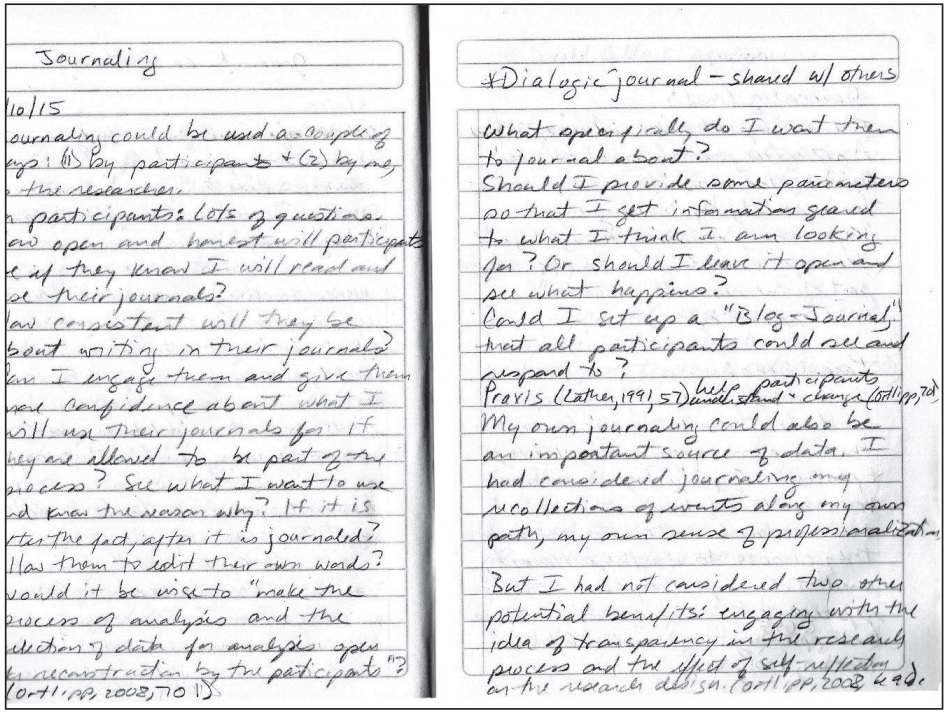 Journaling
/10/15
ournaling could be used a couple of
ays: (1) by participants + (2) by me,
s the researcher.
n participants: Lots of questions.
ow open and honest will participants
e if they know I will read and
se their journals?
ow consistent will they be
bout writing in their journals?
an I engage them and give them
more confidence about what I
will use their journals for if
hey are allowed to be part of the
process? See what I want to use
nd know the reason why? If it is
fter the fact, after it is journaled?
llow them to edit their own words?
would it be wise to "make the
process of analysis and the
election of data for analysis open
to reconstruction by the participants"?
(Ortlipp, 2008, 701)
*Dialogic journal – shared w/ others
What specifically do I want them
to journal about?
Should I provide some parameters
so that I get information geared
to what I think I am looking
for? Or should I leave it open and
see what happens?
Could I set up a "Blog-Journal"
that all participants could see and
respond to?
Praxis (Lather, 1991, 57) help participants understand + change (Ortlipp, 701)
My own journaling could also be
an important source of data. I
had considered journaling my
recollections of events along my own
path, my own sense of professionalization.
But I had not considered two other
potential benefits: engaging with the
idea of transparency in the research
process and the effect of self-reflection
on the research design. (Ortlipp, 2008,